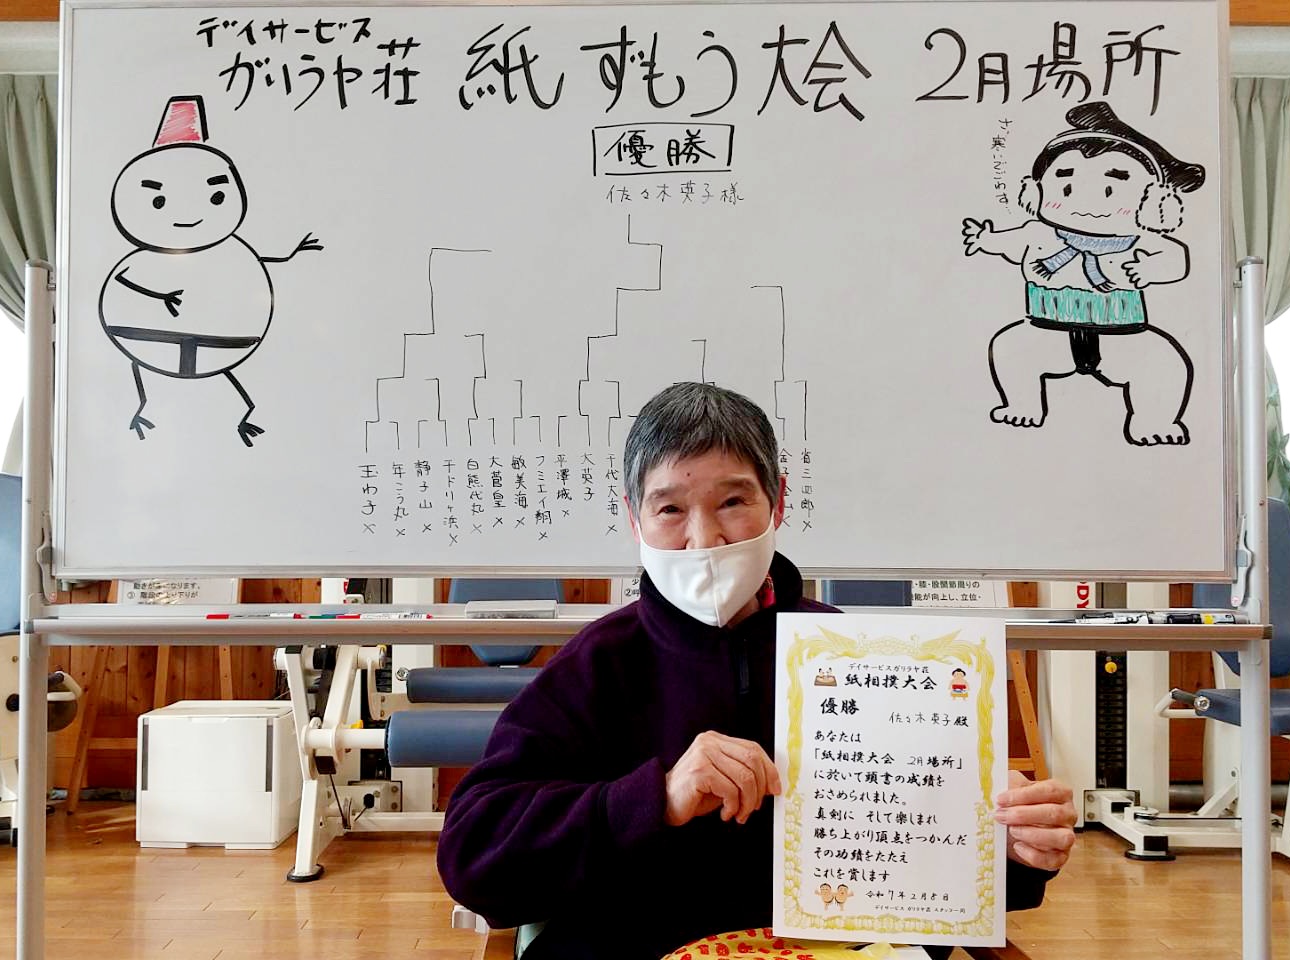 デイサービス
ガリラヤ荘 紙ずもう大会 2月場所
優勝
佐々木英子様
さ、寒いでごわす…
玉わ子 ×
年こう丸 ×
静子山 ×
千ドリヶ浜 ×
白熊代丸 ×
大菅皇 ×
敏美海 ×
フミエイ翔 ×
平澤城 ×
大英子
千代大海 ×
省三四郎 ×
動きが楽になります。
③ 階段の上り下りが
・膝・股関節周りの
能が向上し、立位・
デイサービスガリラヤ荘
紙相撲大会
優勝
佐々木英子殿
あなたは
「紙相撲大会 2月場所」
に於いて頭書の成績を
おさめられました。
真剣に そして楽しまれ
勝ち上がり頂点をつかんだ
その功績をたたえ
これを賞します
令和7年2月8日
デイサービス ガリラヤ荘 スタッフ一同